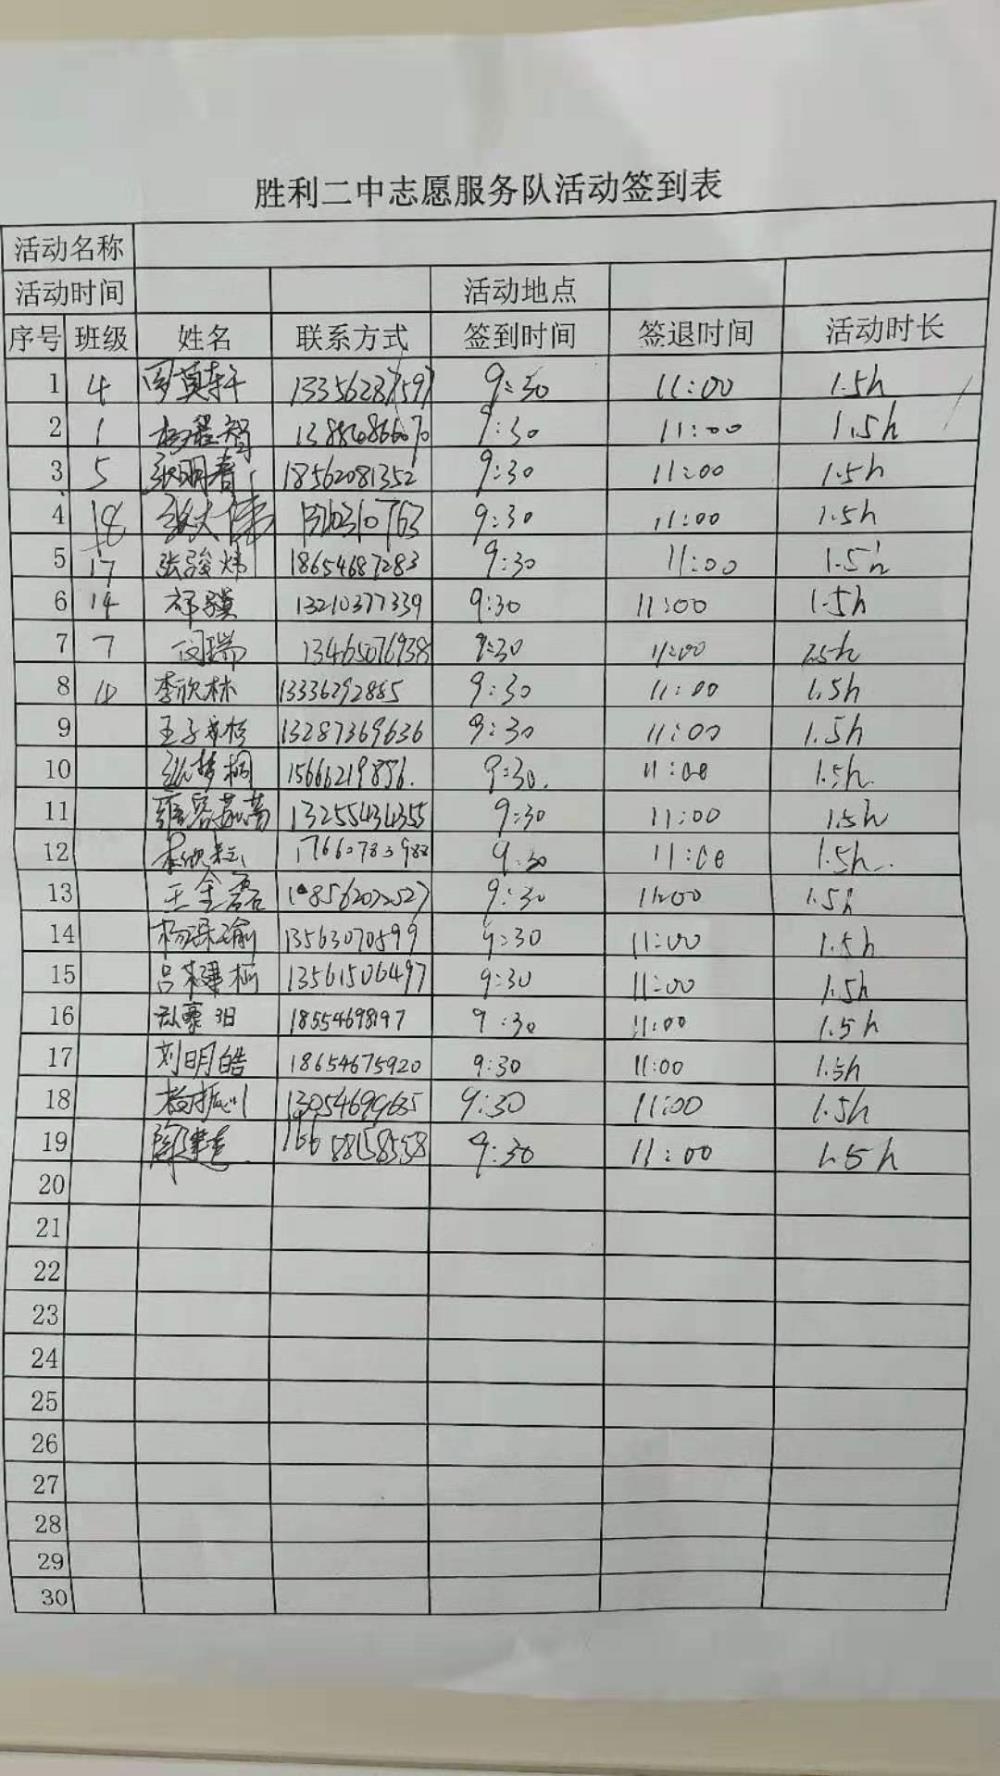 胜利二中志愿服务队活动签到表
活动名称
活动时间 活动地点
序号 班级 姓名 联系方式 签到时间 签退时间 活动时长
1 4 13356287597 9:30 11:00 1.5h
2 1 9:30 11:00 1.5h
3 5 张明春 18562081352 9:30 11:00 1.5h
4 18 9:30 11:00 1.5h
5 17 张骏炜 18654687283 9:30 11:00 1.5h
6 14 祁骥 13210377339 9:30 11:00 1.5h
7 7 闫瑞 13465076938 9:30 11:00
8 李欣林 13336292885 9:30 11:00 1.5h
9 13287369636 9:30 11:00 1.5h
10 张梦桐 15666219856. 9:30. 11:00 1.5h.
11 13255434355 9:30 11:00 1.5h
12 17660783988 9:30 11:00 1.5h.
13 王金磊 9:30 11:00 1.5h
14 13563070599 9:30 11:00 1.5h
15 吕建柯 13561506497 9:30 11:00 1.5h
16 18554698197 9:30 11:00 1.5h
17 刘明皓 18654675920 9:30 11:00 1.5h
18 13054699685 9:30 11:00 1.5h
19 16688158558 9:30 11:00 1.5h
20
21
22
23
24
25
26
27
28
29
30